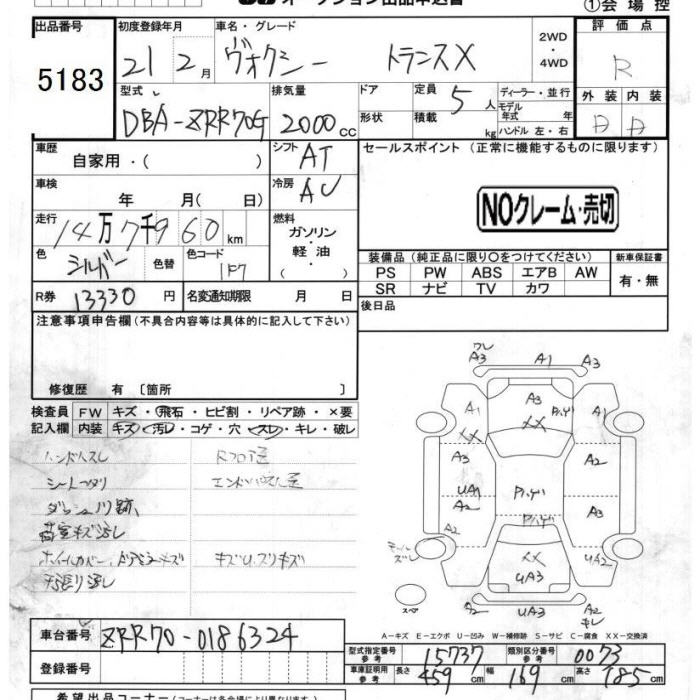 オークション出品申込書
①会場控
出品番号 初度登録年月 車名・グレード 2WD・4WD 評価点
5183 21 2月 ヴォクシー トランスX R
型式 排気量 ドア 定員 5人 ディーラー・並行 外装 内装
DBA-ZRR70G 2000cc 形状 積載 kg モデル年式 年 ハンドル 左・右 D D
車歴 シフト AT セールスポイント(正常に機能するものに限ります)
自家用・( )
車検 冷房 AC
年 月( 日)
NOクレーム・売切
走行 14万7千960km 燃料 ガソリン・軽油・( )
色 シルバー 色替 色コード 1F7
装備品(純正品に限り○をつけてください) 新車保証書
PS PW ABS エアB AW 有・無
SR ナビ TV カワ
R券 13330円 名変通知期限 月 日
後日品
注意事項申告欄(不具合内容等は具体的に記入して下さい)
修復歴 有〔箇所 〕
検査員記入欄 FW キズ・飛石・ヒビ割・リペア跡・×要
内装 キズ・汚レ・コゲ・穴・スレ・キレ・破レ
ハンドルスレ
荷室キズ汚レ
天張り汚レ
A3 A1 A3
A1 A3
XX XX
A3 A2
UA1 A3
A2 UA2
XX
UA3
UA3 A2
スペア
A-キズ E-エクボ U-凹み W-補修跡 S-サビ C-腐食 XX-交換済
車台番号 ZRR70-0186324
登録番号
型式指定番号 参考 15737 類別区分番号 参考 0073
車庫証明用 参考 長さ 459 幅 169 高さ 185cm
希望出品コーナー(コーナーは各会場により異なります)